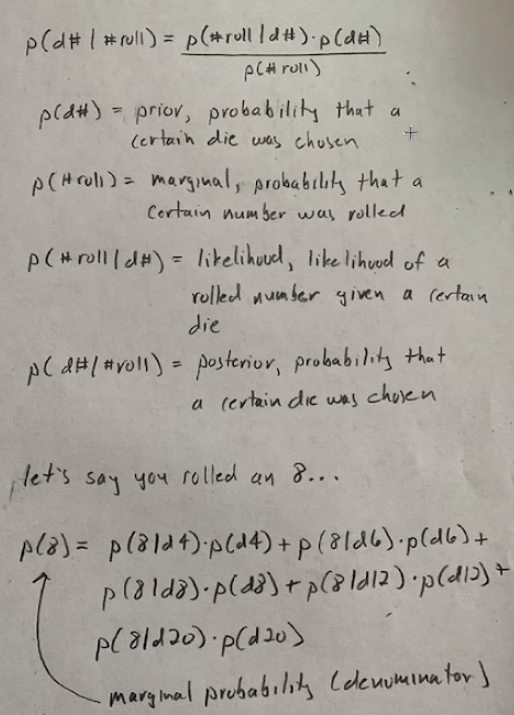 p(d# | #roll) = p(#roll | d#) · p(d#)
p(#roll)
p(d#) = prior, probability that a
certain die was chosen
p(#roll) = marginal, probability that a
certain number was rolled
p(#roll | d#) = likelihood, likelihood of a
rolled number given a certain
die
p(d# | #roll) = posterior, probability that
a certain die was chosen
let's say you rolled an 8...
p(8) = p(8|d4)·p(d4) + p(8|d6)·p(d6) +
p(8|d8)·p(d8) + p(8|d12)·p(d12) +
p(8|d20)·p(d20)
marginal probability (denominator)